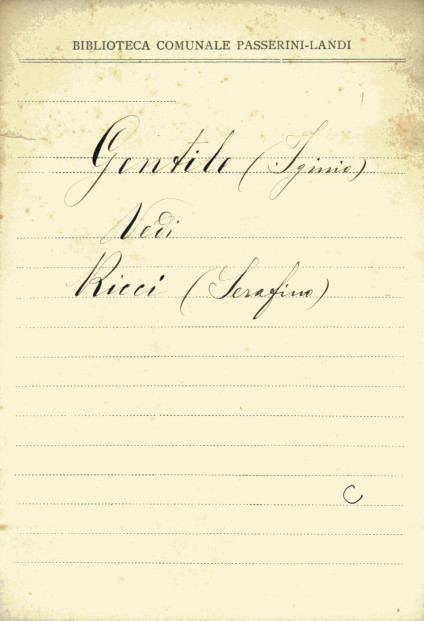 BIBLIOTECA COMUNALE PASSERINI-LANDI
Gentile (Iginio)
Vedi
Ricci (Serafino)
C